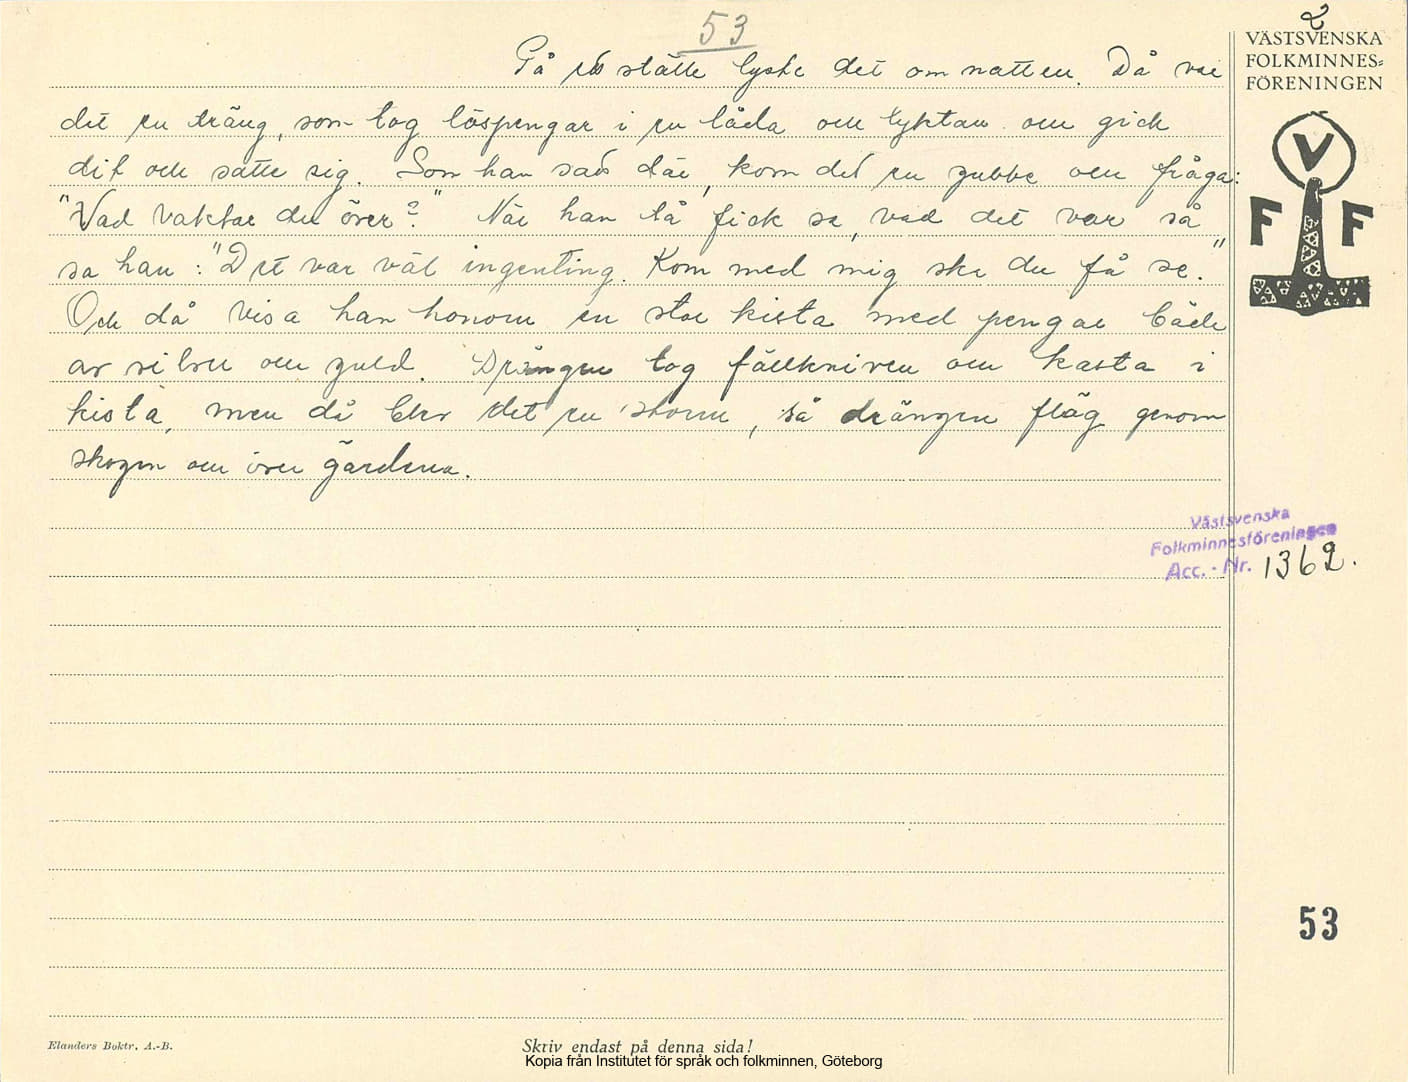 53
2
VÄSTSVENSKA
FOLKMINNES=
FÖRENINGEN
V
F F
På ett ställe lyste det om natten. Då var
det en dräng, som tog löspengar i en låda och lyktan och gick
dit och satte sig. Som han satt där, kom det en gubbe och fråga:
"Vad vaktar du över?" När han då fick se, vad det var så
sa han: "Det var väl ingenting. Kom med mig ska du få se."
Och då visa han honom en stor kista med pengar både
av silver och guld. Drängen tog fällkniven och kasta i
kista, men då blev det en storm, så drängen flög genom
skogen och över gärdena.
Västsvenska
Folkminnesföreningen
Acc. - Nr. 1362.
53
Elanders Boktr. A.-B.
Skriv endast på denna sida!
Kopia från Institutet för språk och folkminnen, Göteborg